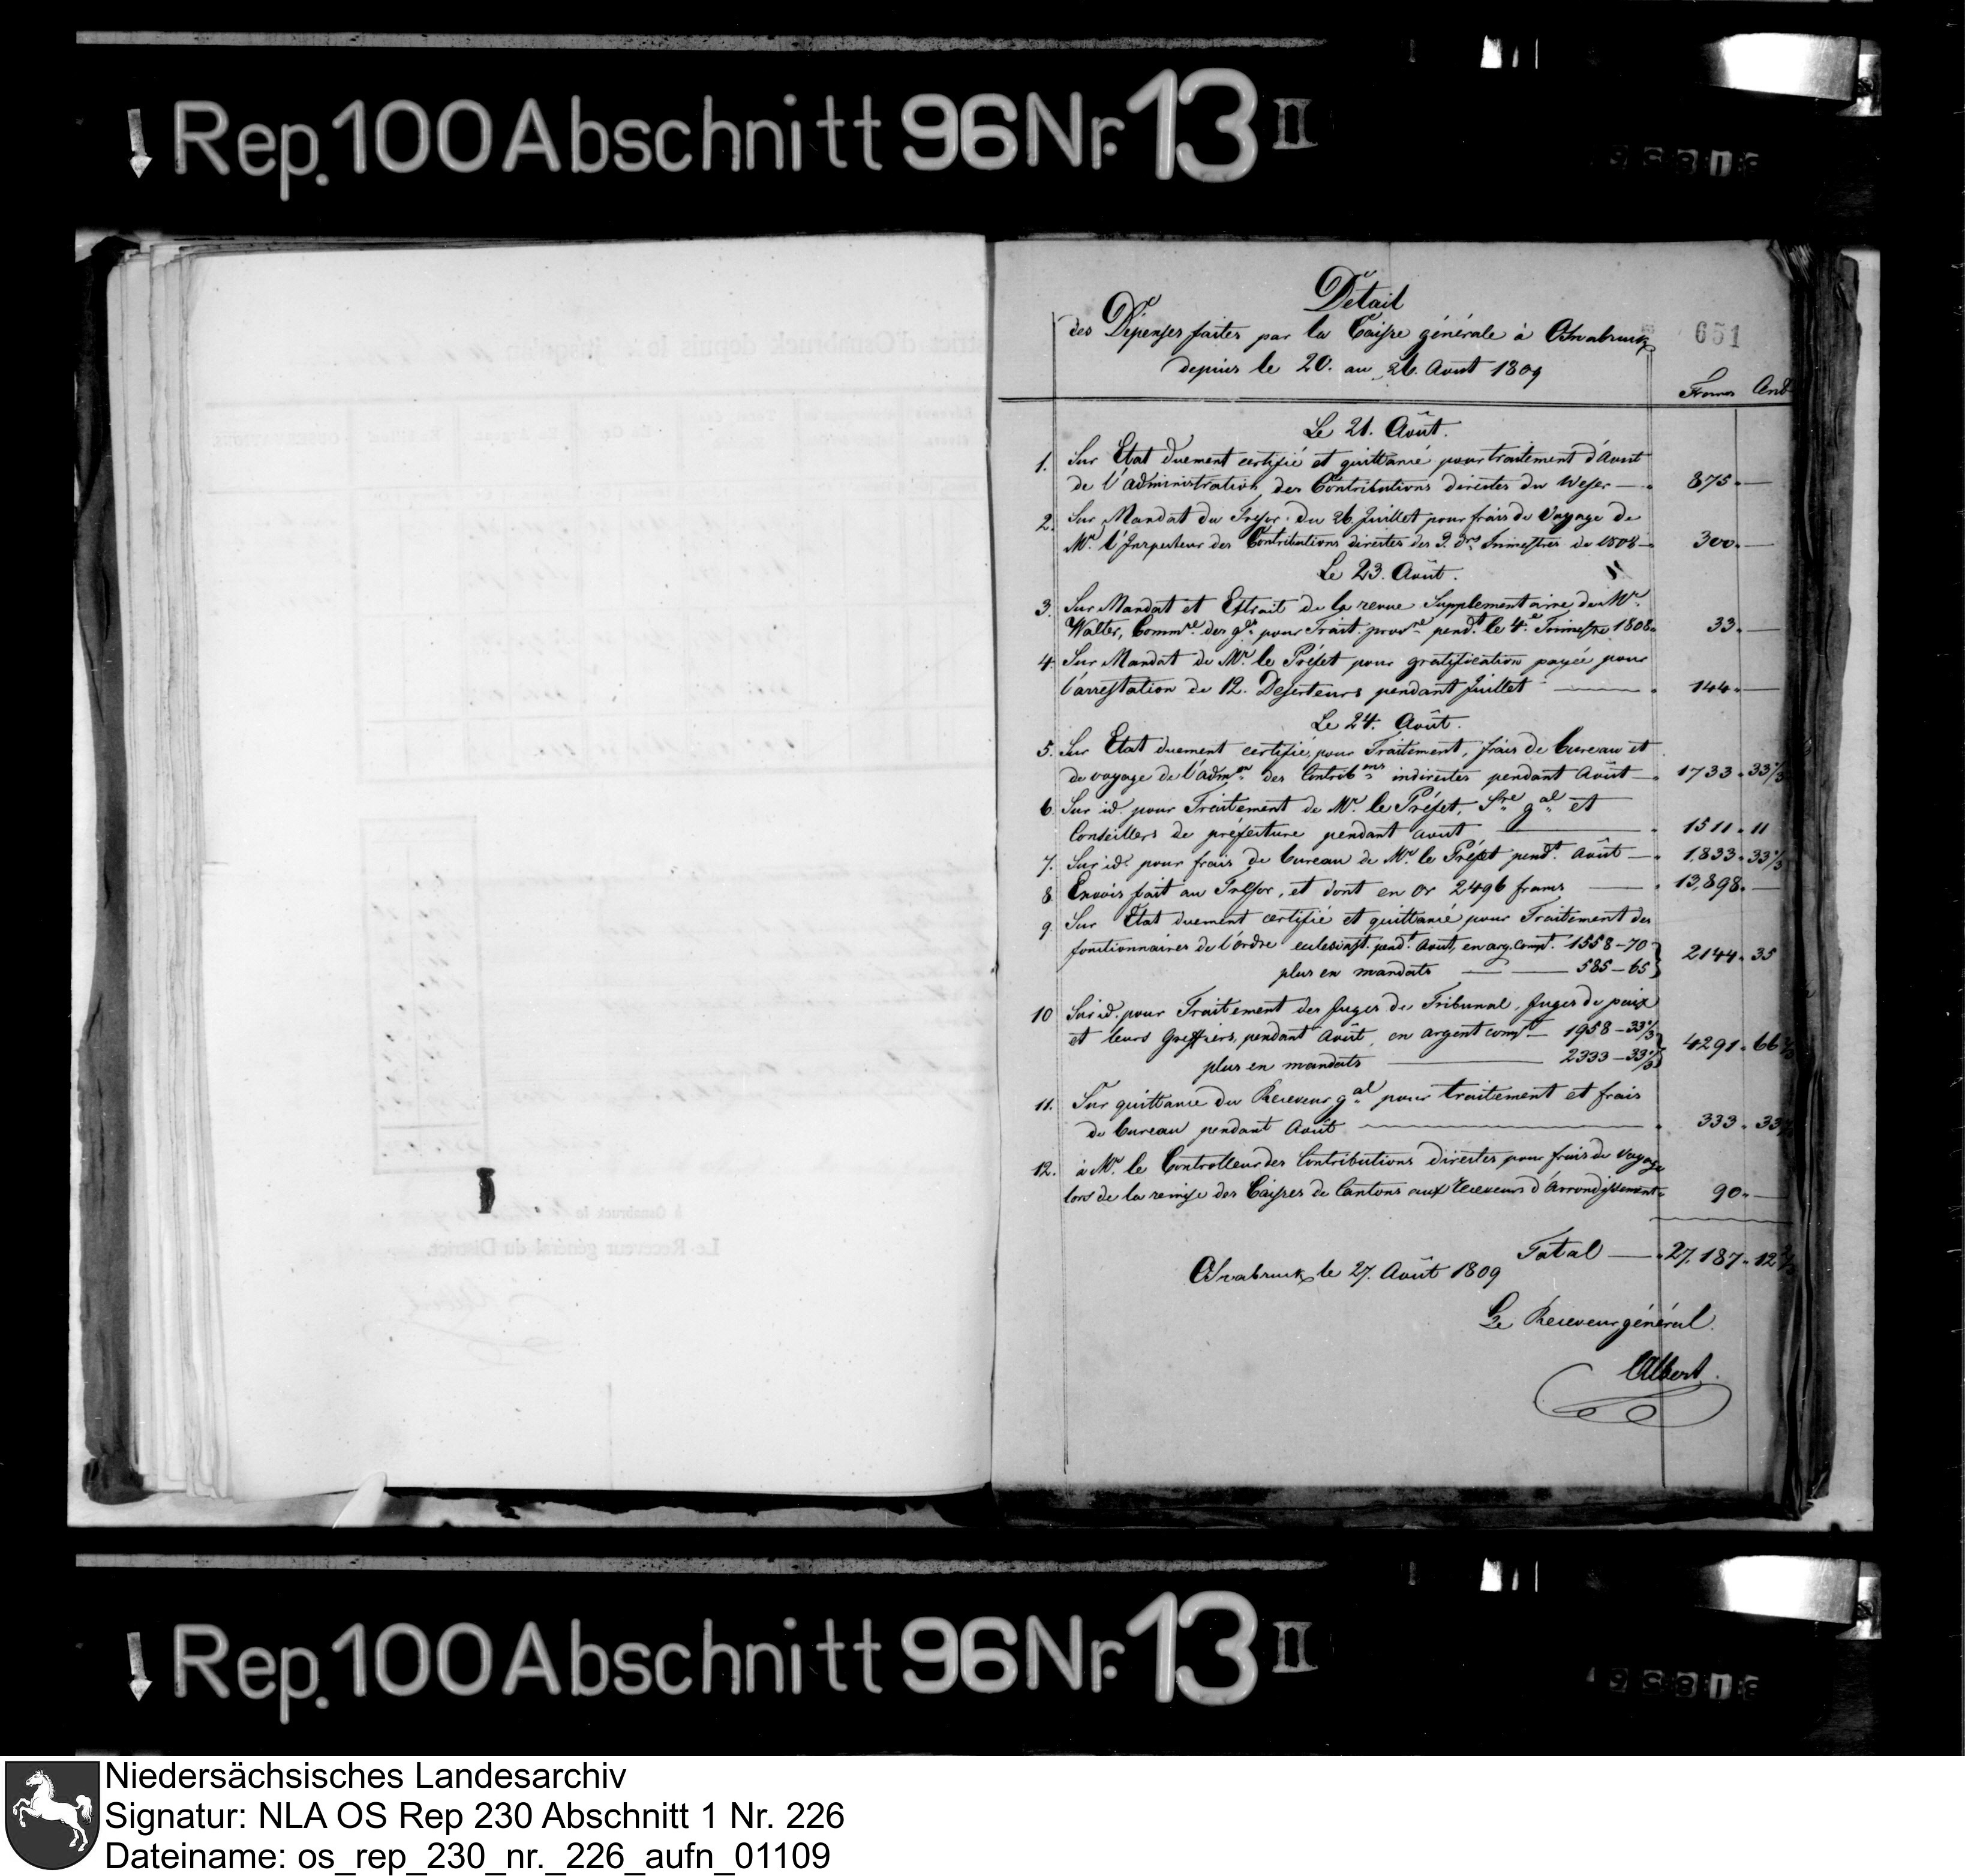 Rep. 100 Abschnitt 96 Nr. 13 II
Détail
des Dépenses faites par la Caisse générale à Osnabruck
651
depuis le 20. au 26. Août 1809
Francs Cent
Le 21. Août.
1. Sur Etat duement certifié et quittancé pour traitement d'Août
de l'administration des Contributions directes du Weser — 875. —
2. Sur Mandat du Trésor du 26. Juillet pour frais de Voyage de
Mr. l'Inspecteur des Contributions directes des 3. drs Trimestres de 1808 — 300. —
Le 23. Août.
3. Sur Mandat et Extrait de la revue Supplementaire de Mr.
Walter, Commre des gs pour Trait. provre pendt. le 4e. Trimestre 1808. 33. —
4. Sur Mandat de Mr. le Préfet pour gratification payée pour
l'arrestation de 12. Deserteurs pendant Juillet — 144. —
Le 24. Août.
5. Sur Etat duement certifié pour Traitement, frais de bureau et
de voyage de l'admon des Contribons indirectes pendant Août — 1733. 33 1/3
6. Sur id. pour Traitement de Mr. le Préfet, Sre gal et
Conseillers de préfecture pendant Août — 1511. 11
7. Sur id. pour frais de bureau de Mr. le Préfet pendt. Août — 1,833. 33 1/3
8. Envois fait au Trésor, et dont en or 2496 francs — 13,898. —
9. Sur Etat duement certifié et quittancé pour Traitement des
fonctionnaires de l'ordre eclesiast. pendt. Août, en arg. compt. 1558-70
2144. 35
plus en mandats — 585-65
10 Sur id. pour Traitement des Juges du Tribunal, Juges de paix
et leurs Greffiers, pendant Août, en argent compt — 1958-33 1/3
4291. 66 2/3
plus en mandats — 2333-33 1/3
11. Sur quittance du Receveur gal pour traitement et frais
de bureau pendant Août — 333. 33 1/3
12. à Mr. le Controlleur des Contributions directes pour frais de voyage
lors de la remise des Caisses de Cantons aux Receveurs d'Arrondissement. 90. —
Total — 27,187. 12 2/3
Osnabruck le 27. Août 1809
Le Receveur général.
Albert.
à Osnabruck le
Le Receveur général du District.
Rep. 100 Abschnitt 96 Nr. 13 II
Niedersächsisches Landesarchiv
Signatur: NLA OS Rep 230 Abschnitt 1 Nr. 226
Dateiname: os_rep_230_nr._226_aufn_01109